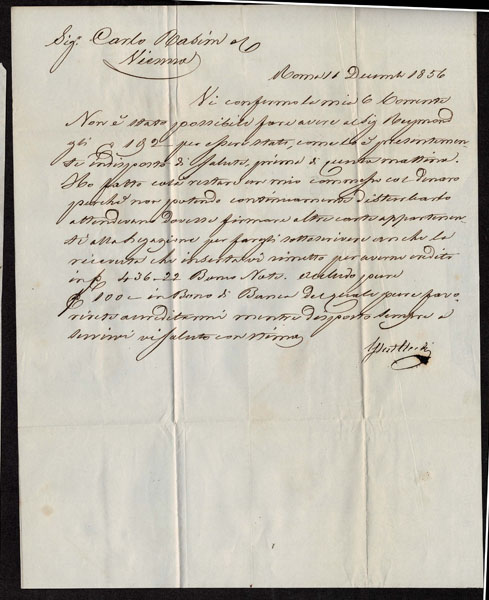 Sig. Carlo
Vienna
Roma 11 Decemb 1856
Vi confermo la mia 6 Corrente
Non è stato possibile fare avere al Sig Reymond
gli 192 per essere stato, come lo è presentemen-
te indisposto di Salute, prima di questa mattina.
Ho fatto colà restare un mio commesso col denaro
perchè non potendo continuamente disturbarlo
attendeva dovesse firmare altre carte appartenen-
ti alla Legazione per fargli sottoscrivere anche la
ricevuta che inserta vi rimetto per averne credito
in f 436-22 Banco Note. Accludo pure
f 100 - in Bono di Banca del quale pure favo-
rirete accreditarmi mentre disposto sempre a
servirvi vi saluto con stima